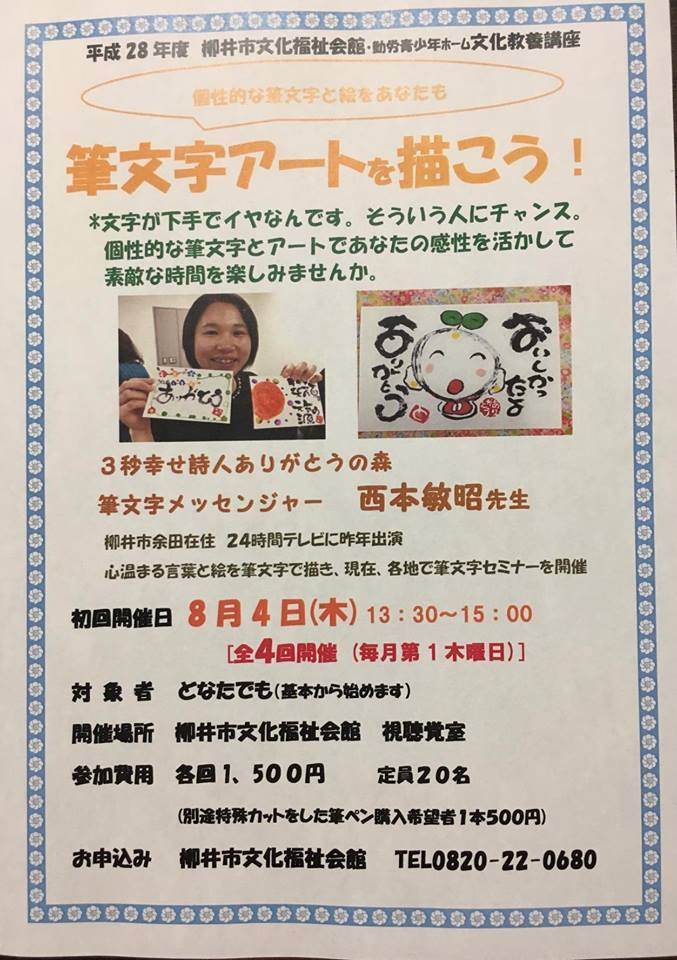 平成28年度 柳井市文化福祉会館・勤労青少年ホーム文化教養講座
個性的な筆文字と絵をあなたも
筆文字アートを描こう！
*文字が下手でイヤなんです。そういう人にチャンス。
個性的な筆文字とアートであなたの感性を活かして
素敵な時間を楽しみませんか。
ありがとう
おいしかったよ
ありがとう
３秒幸せ詩人ありがとうの森
筆文字メッセンジャー 西本敏昭先生
柳井市余田在住 24時間テレビに昨年出演
心温まる言葉と絵を筆文字で描き、現在、各地で筆文字セミナーを開催
初回開催日 8月4日(木) 13：30～15：00
[全4回開催（毎月第１木曜日）]
対象者 どなたでも(基本から始めます)
開催場所 柳井市文化福祉会館 視聴覚室
参加費用 各回1、500円 定員20名
(別途特殊カットをした筆ペン購入希望者1本500円)
お申込み 柳井市文化福祉会館 TEL0820-22-0680